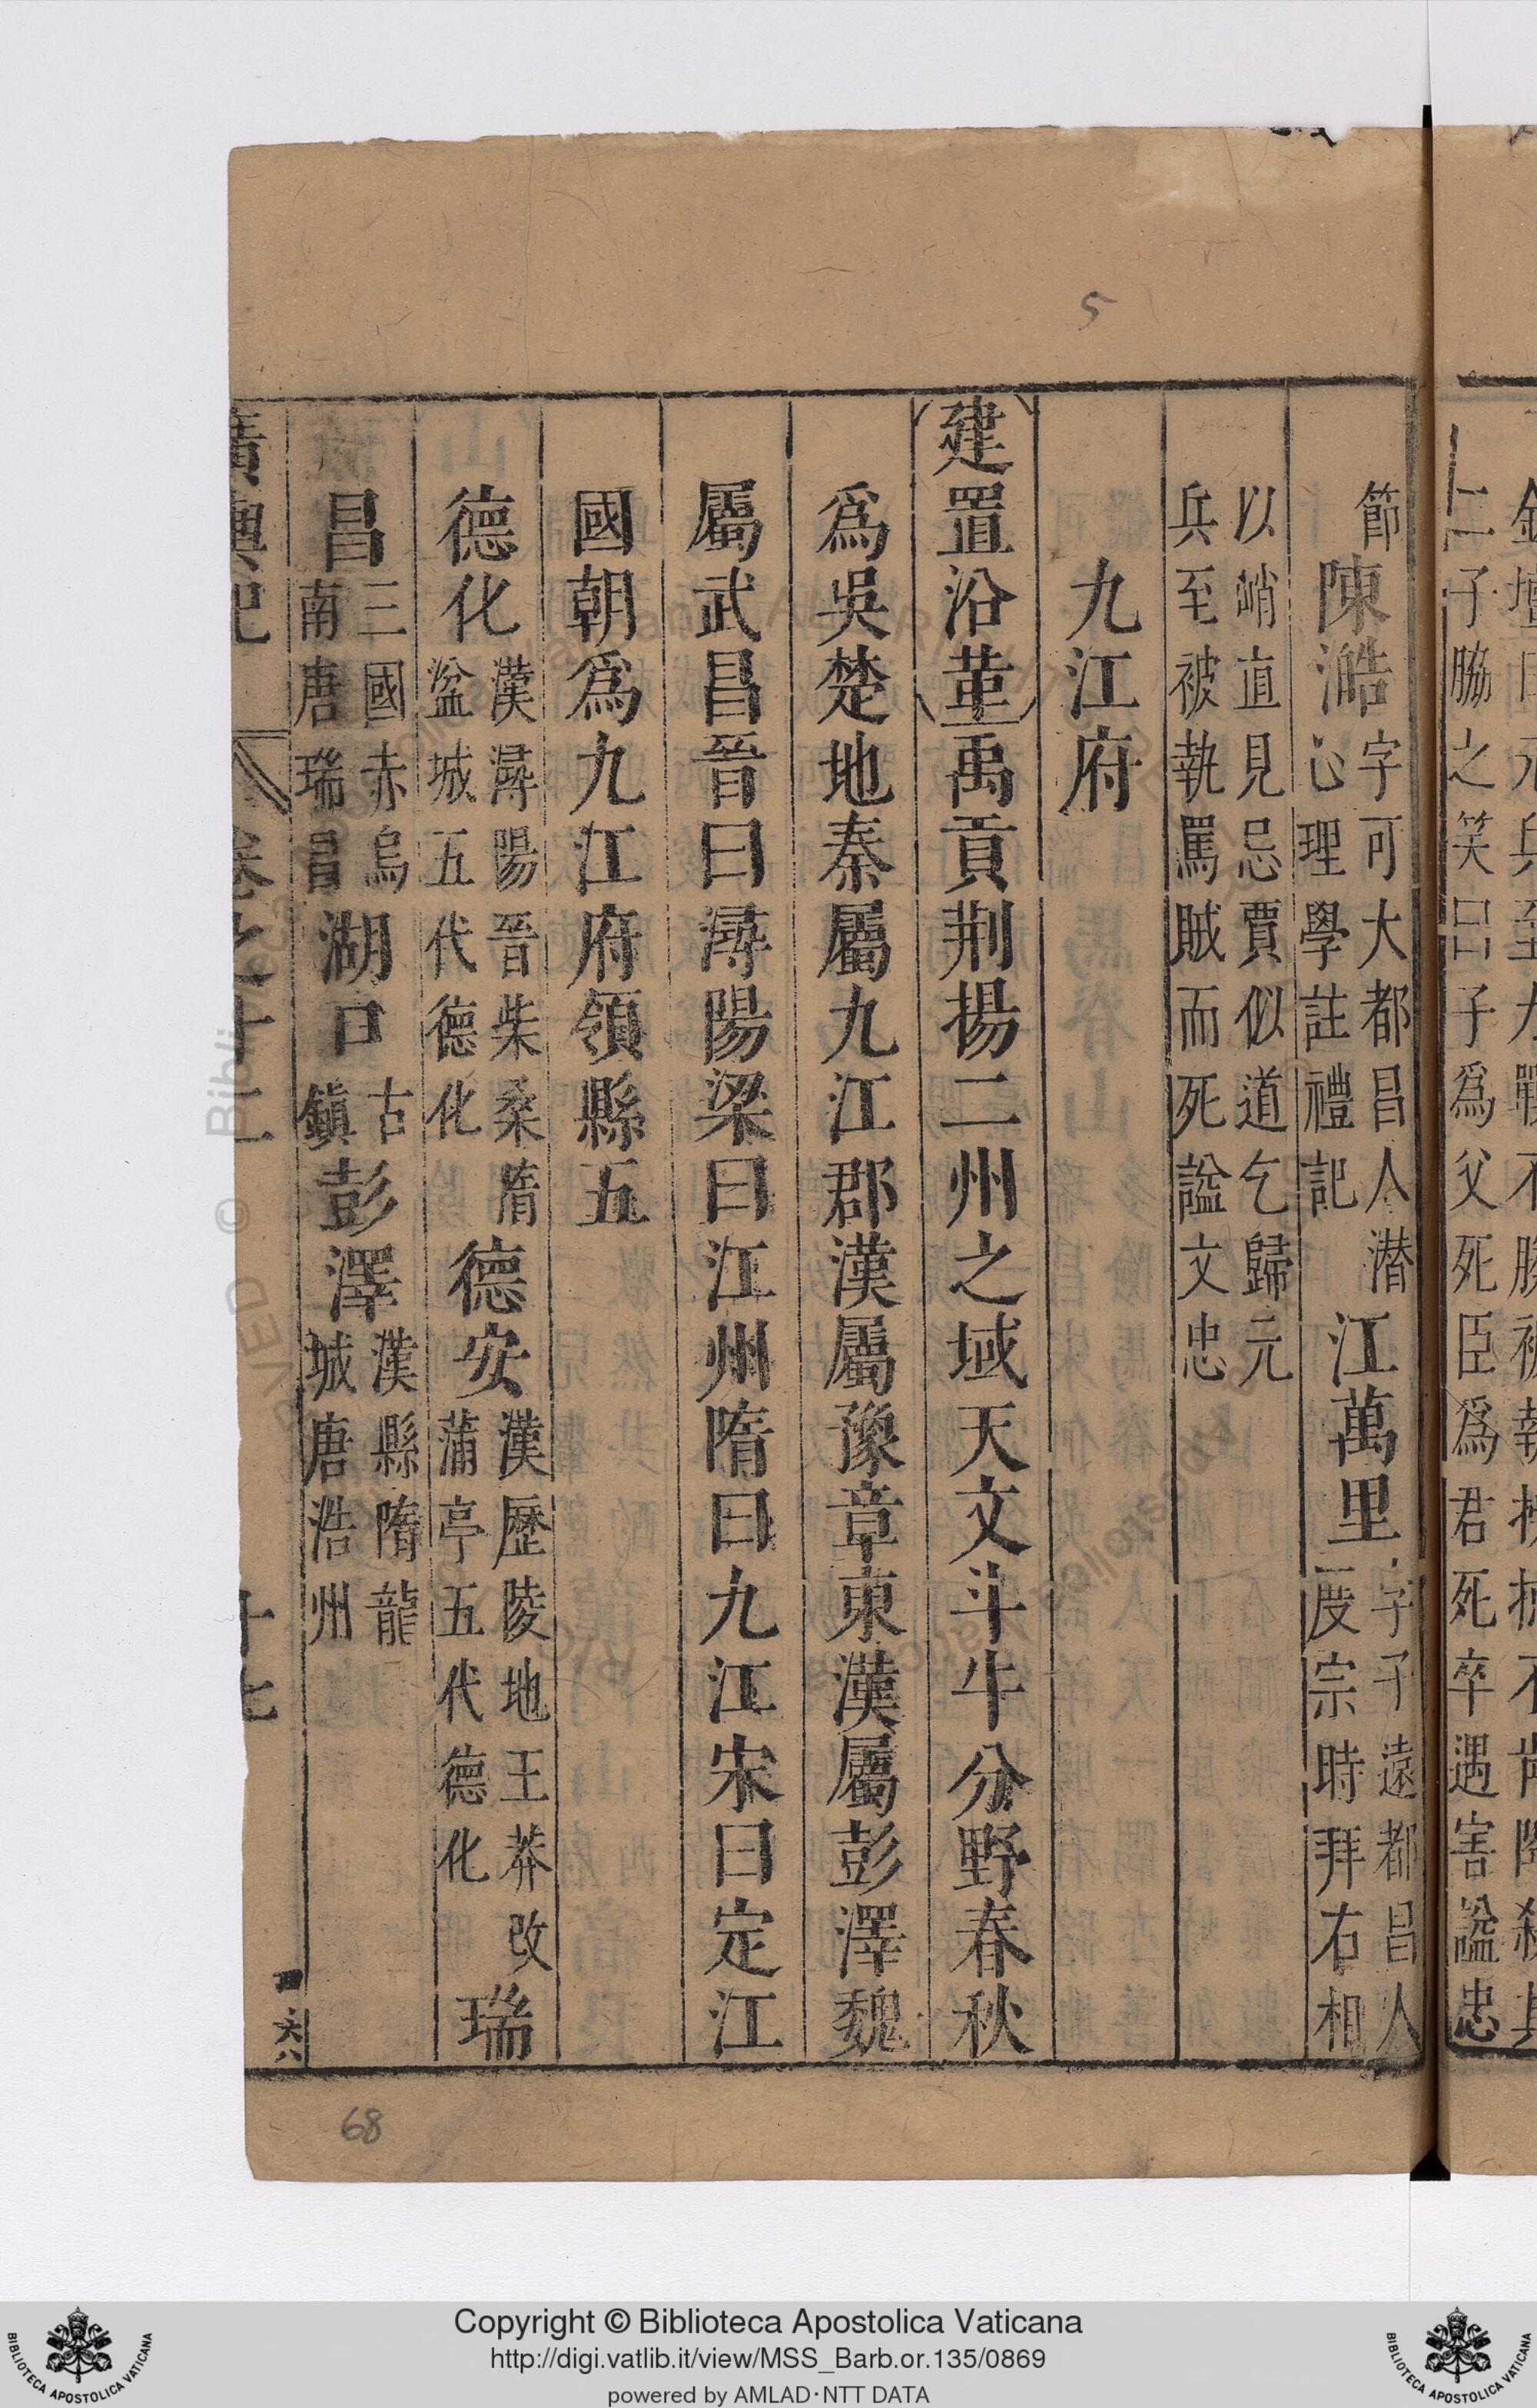 二子脇之笑曰子爲父死臣爲君死卒遇害謚忠
節 陳澔 字可大都昌人潛
心理學註禮記 江萬里 字子遠都昌人
度宗時拜右相
以峭直見忌賈似道乞歸元
兵至被執罵賊而死謚文忠
九江府
建置沿革 禹貢荆揚二州之域天文斗牛分野春秋
爲吳楚地秦屬九江郡漢屬豫章東漢屬彭澤魏
屬武昌晉曰潯陽梁曰江州隋曰九江宋曰定江
國朝爲九江府領縣五
德化 漢潯陽晉柴桑隋
湓城五代德化 德安 漢歷陵地王莽改
蒲亭五代德化 瑞
昌 三國赤烏
南唐瑞昌 湖口 古
鎮 彭澤 漢縣隋龍
城唐浩州
廣輿記 卷之十二 十七
六八
5
68
Copyright © Biblioteca Apostolica Vaticana
http://digi.vatlib.it/view/MSS_Barb.or.135/0869
powered by AMLAD·NTT DATA
BIBLIOTECA APOSTOLICA VATICANA
BIBLIOTECA APOSTOLICA VATICANA